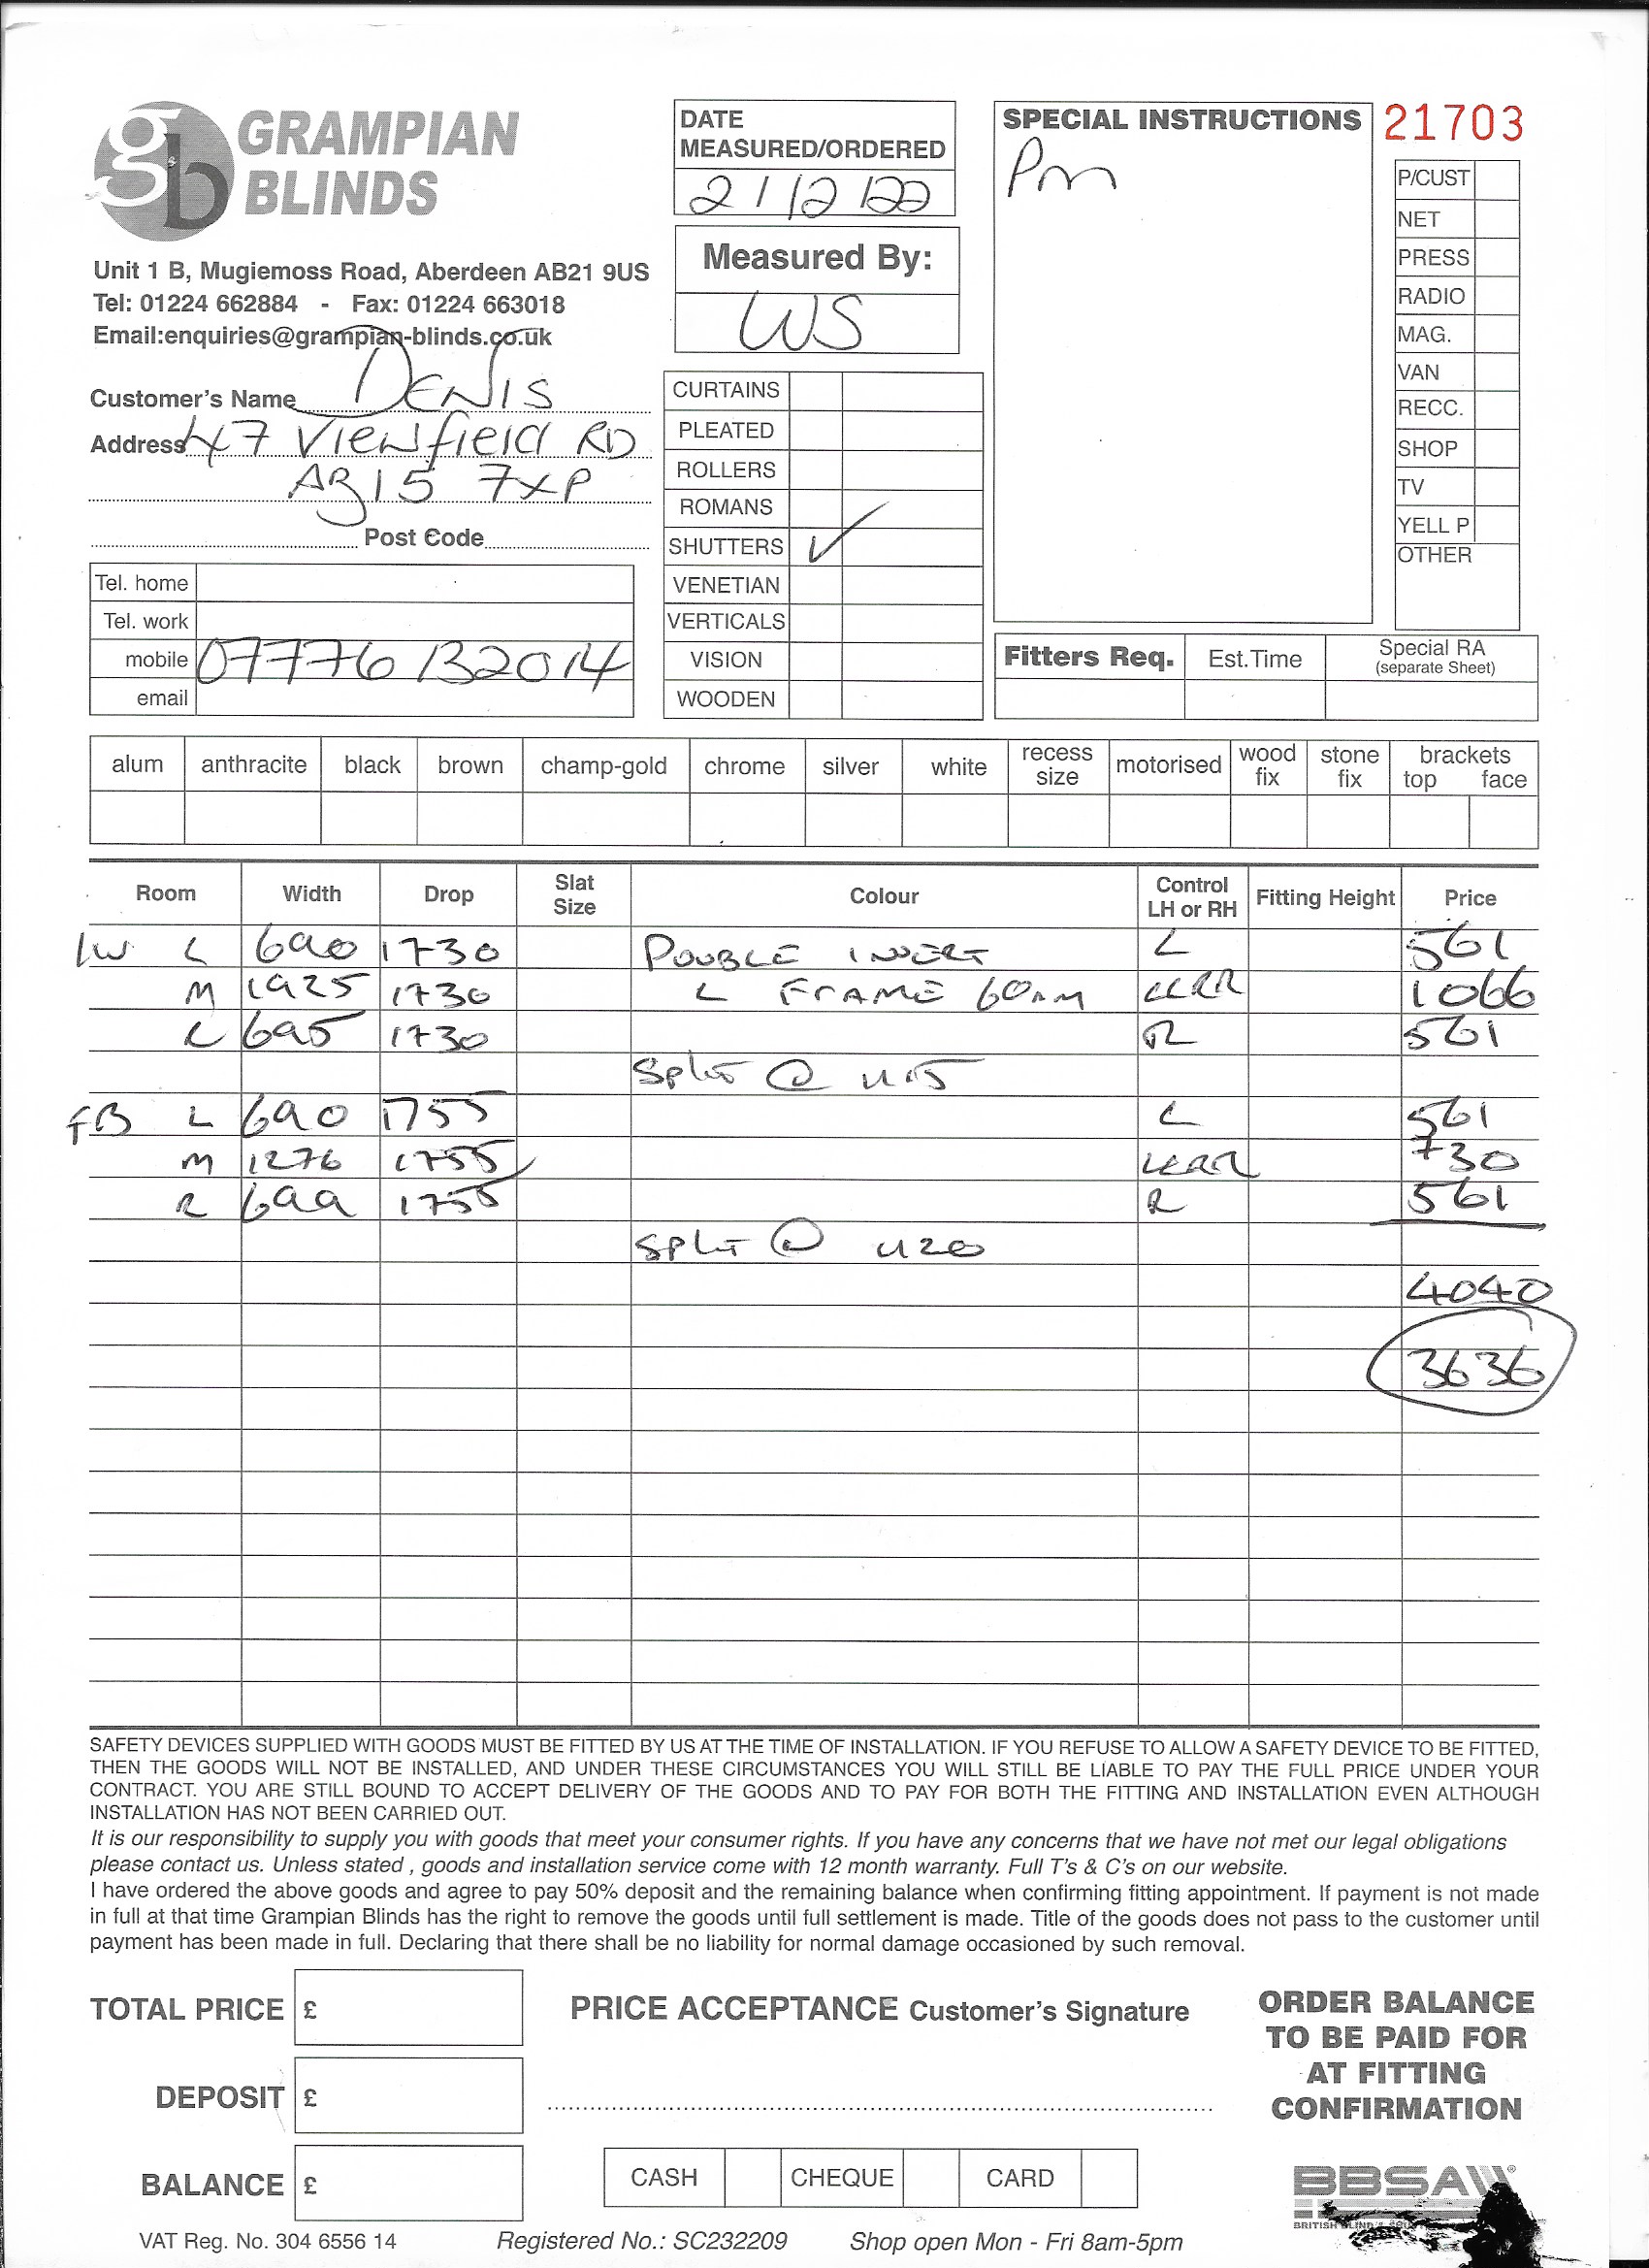 GRAMPIAN
BLINDS
Unit 1 B, Mugiemoss Road, Aberdeen AB21 9US
Tel: 01224 662884 - Fax: 01224 663018
Email:enquiries@grampian-blinds.co.uk
Customer's Name DENIS
Address 47 Viewfield RD
AB15 7XP
Post Code
Tel. home
Tel. work
mobile 07776 132014
email
DATE
MEASURED/ORDERED
21/12/22
Measured By:
WS
CURTAINS
PLEATED
ROLLERS
ROMANS
SHUTTERS ✓
VENETIAN
VERTICALS
VISION
WOODEN
SPECIAL INSTRUCTIONS
Pm
21703
P/CUST
NET
PRESS
RADIO
MAG.
VAN
RECC.
SHOP
TV
YELL P
OTHER
Fitters Req. Est.Time Special RA
(separate Sheet)
alum anthracite black brown champ-gold chrome silver white recess size motorised wood fix stone fix brackets top face
Room Width Drop Slat Size Colour Control LH or RH Fitting Height Price
L 690 1730 DOUBLE INSERT L 561
M 1925 1730 L FRAME 60mm LLRR 1066
695 1730 R 561
Split @
FB L 690 1755 L 561
M 1276 1755 LLRR 730
R 699 1755 R 561
SPLIT @ 1120
4040
3636
SAFETY DEVICES SUPPLIED WITH GOODS MUST BE FITTED BY US AT THE TIME OF INSTALLATION. IF YOU REFUSE TO ALLOW A SAFETY DEVICE TO BE FITTED,
THEN THE GOODS WILL NOT BE INSTALLED, AND UNDER THESE CIRCUMSTANCES YOU WILL STILL BE LIABLE TO PAY THE FULL PRICE UNDER YOUR
CONTRACT. YOU ARE STILL BOUND TO ACCEPT DELIVERY OF THE GOODS AND TO PAY FOR BOTH THE FITTING AND INSTALLATION EVEN ALTHOUGH
INSTALLATION HAS NOT BEEN CARRIED OUT.
It is our responsibility to supply you with goods that meet your consumer rights. If you have any concerns that we have not met our legal obligations
please contact us. Unless stated , goods and installation service come with 12 month warranty. Full T's & C's on our website.
I have ordered the above goods and agree to pay 50% deposit and the remaining balance when confirming fitting appointment. If payment is not made
in full at that time Grampian Blinds has the right to remove the goods until full settlement is made. Title of the goods does not pass to the customer until
payment has been made in full. Declaring that there shall be no liability for normal damage occasioned by such removal.
TOTAL PRICE £
DEPOSIT £
BALANCE £
PRICE ACCEPTANCE Customer's Signature
CASH CHEQUE CARD
ORDER BALANCE
TO BE PAID FOR
AT FITTING
CONFIRMATION
BBSA
VAT Reg. No. 304 6556 14 Registered No.: SC232209 Shop open Mon - Fri 8am-5pm